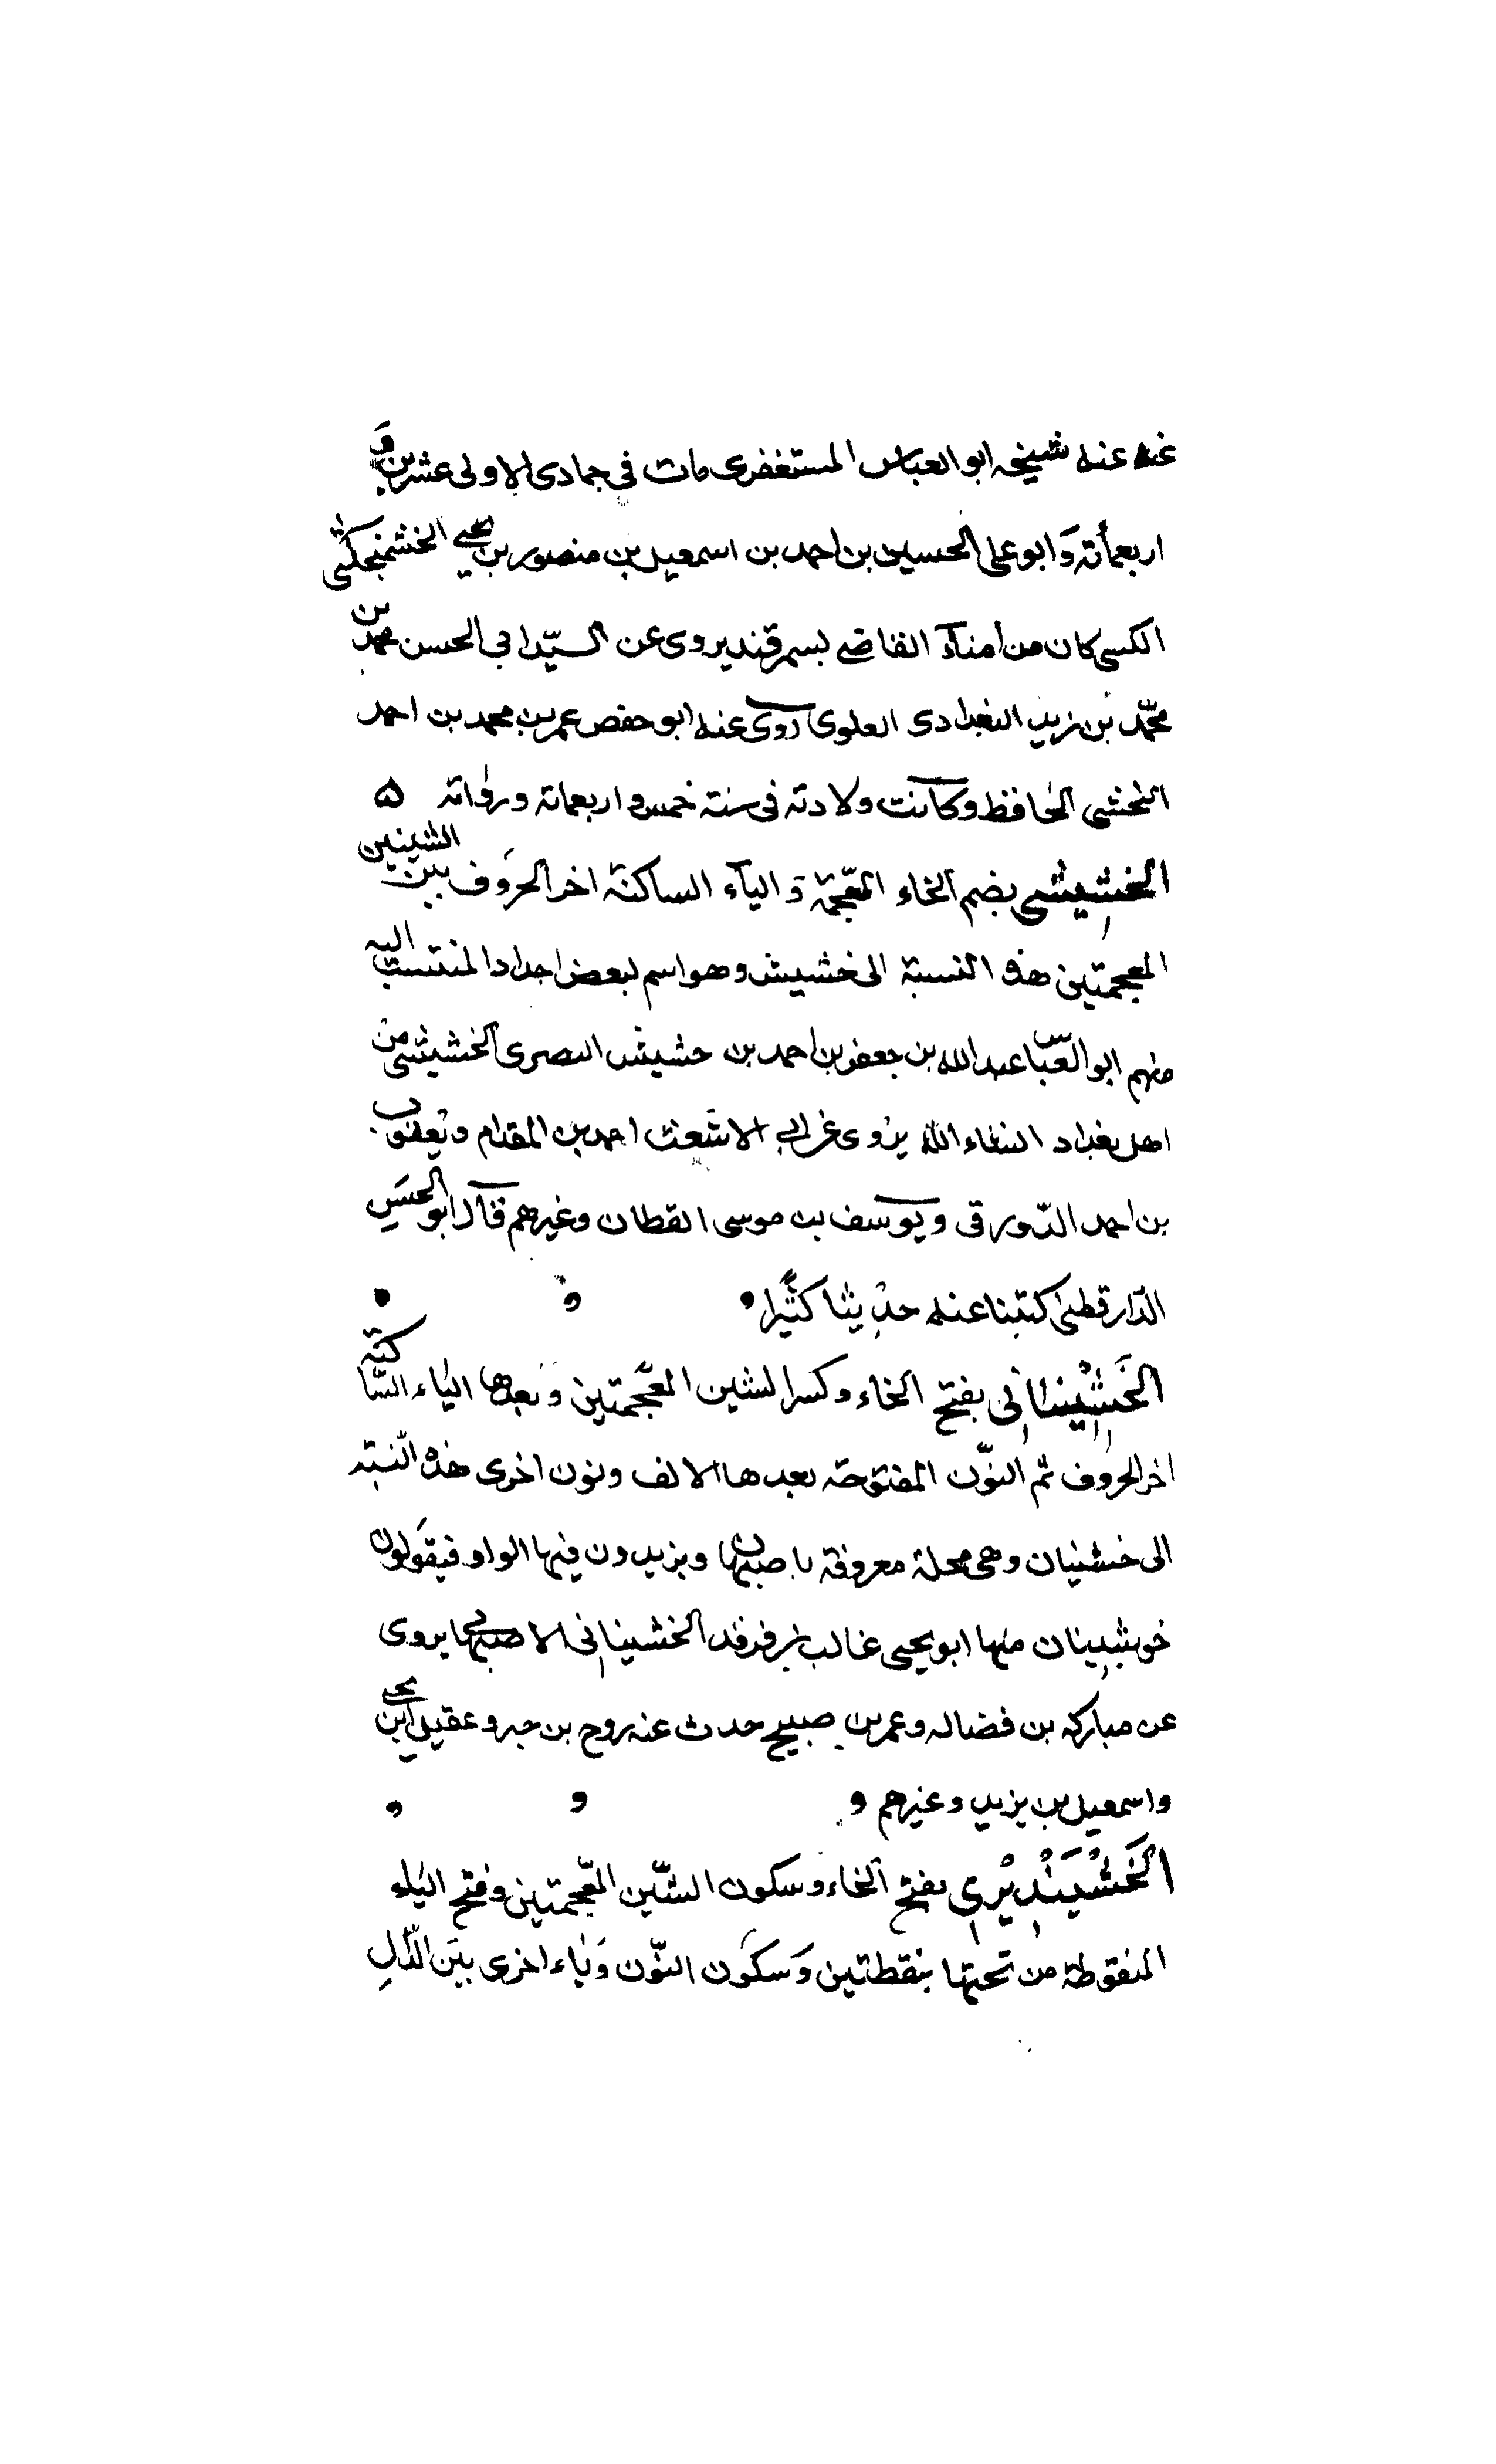 عنه شيخه ابو العباس المستغفرى مات فى جمادى الاولى عشرين و
اربعمائة وَابو على الحسين بن احمد بن اسمعيل بن منصور بن يحيى الخشمنجكثى
الكسى كان من أمنآء القاضى بسمرقند يروى عن السيّد ابى الحسن محمد بن
محمّد بن زيد البغدادى العلوى روى عنه ابو حفص عمر بن محمد بن احمد
النخشبى الحافظ وكانت ولادته فى سنة خمس و اربعماتة
الخشيشى بضم الخاء المعجمة وَ اليآء الساكنة اخر الحروف بين الشينين
المعجمتين هذه النسبة الى خشيش وهو اسم لبعض اجداد المنتسب اليه
منهم ابو العبّاس عبد الله بن جعفر بن احمد بن خشيش البصرى الخشيشى من
اهل بغداد يروى عن ابى الاشعث احمد بن المقدام ويعقوب
بن احمد الدّورقى ويوسف بن موسى القطان وغيرهم قال ابو الحسَن
الدّارقطنى كتبنا عنه حديثا كثيرا
الخَشْيِنانى بفتح الخاء وكسر الشين المعجمتين وبعدها الياء السّاكنة
اخر الحروف ثم النوّن المفتوحة بعدها الالف ونون اخرى هذه النسبة
الى خشينان وهى محلة معروفة باصبهان ويزيدون فيها الواو فيقولون
خوشينان منها ابو يحيى غالب بن فرقد الخشينانى الاصبهانى يروى
عن مباركه بن فضاله وعمر بن صبيح حدث عنه روح بن جبر وعقيل بن يحيى
واسمعيل بن يزيد وغيرهم
الخَشْيَنْدِيْزِى بفتح الخاء وسكون الشّين المعجمتين وفتح الياء
المنقوطة من تحتها بنقطتين وَسكون النوّن وَياء اخرى بين الدّالِ